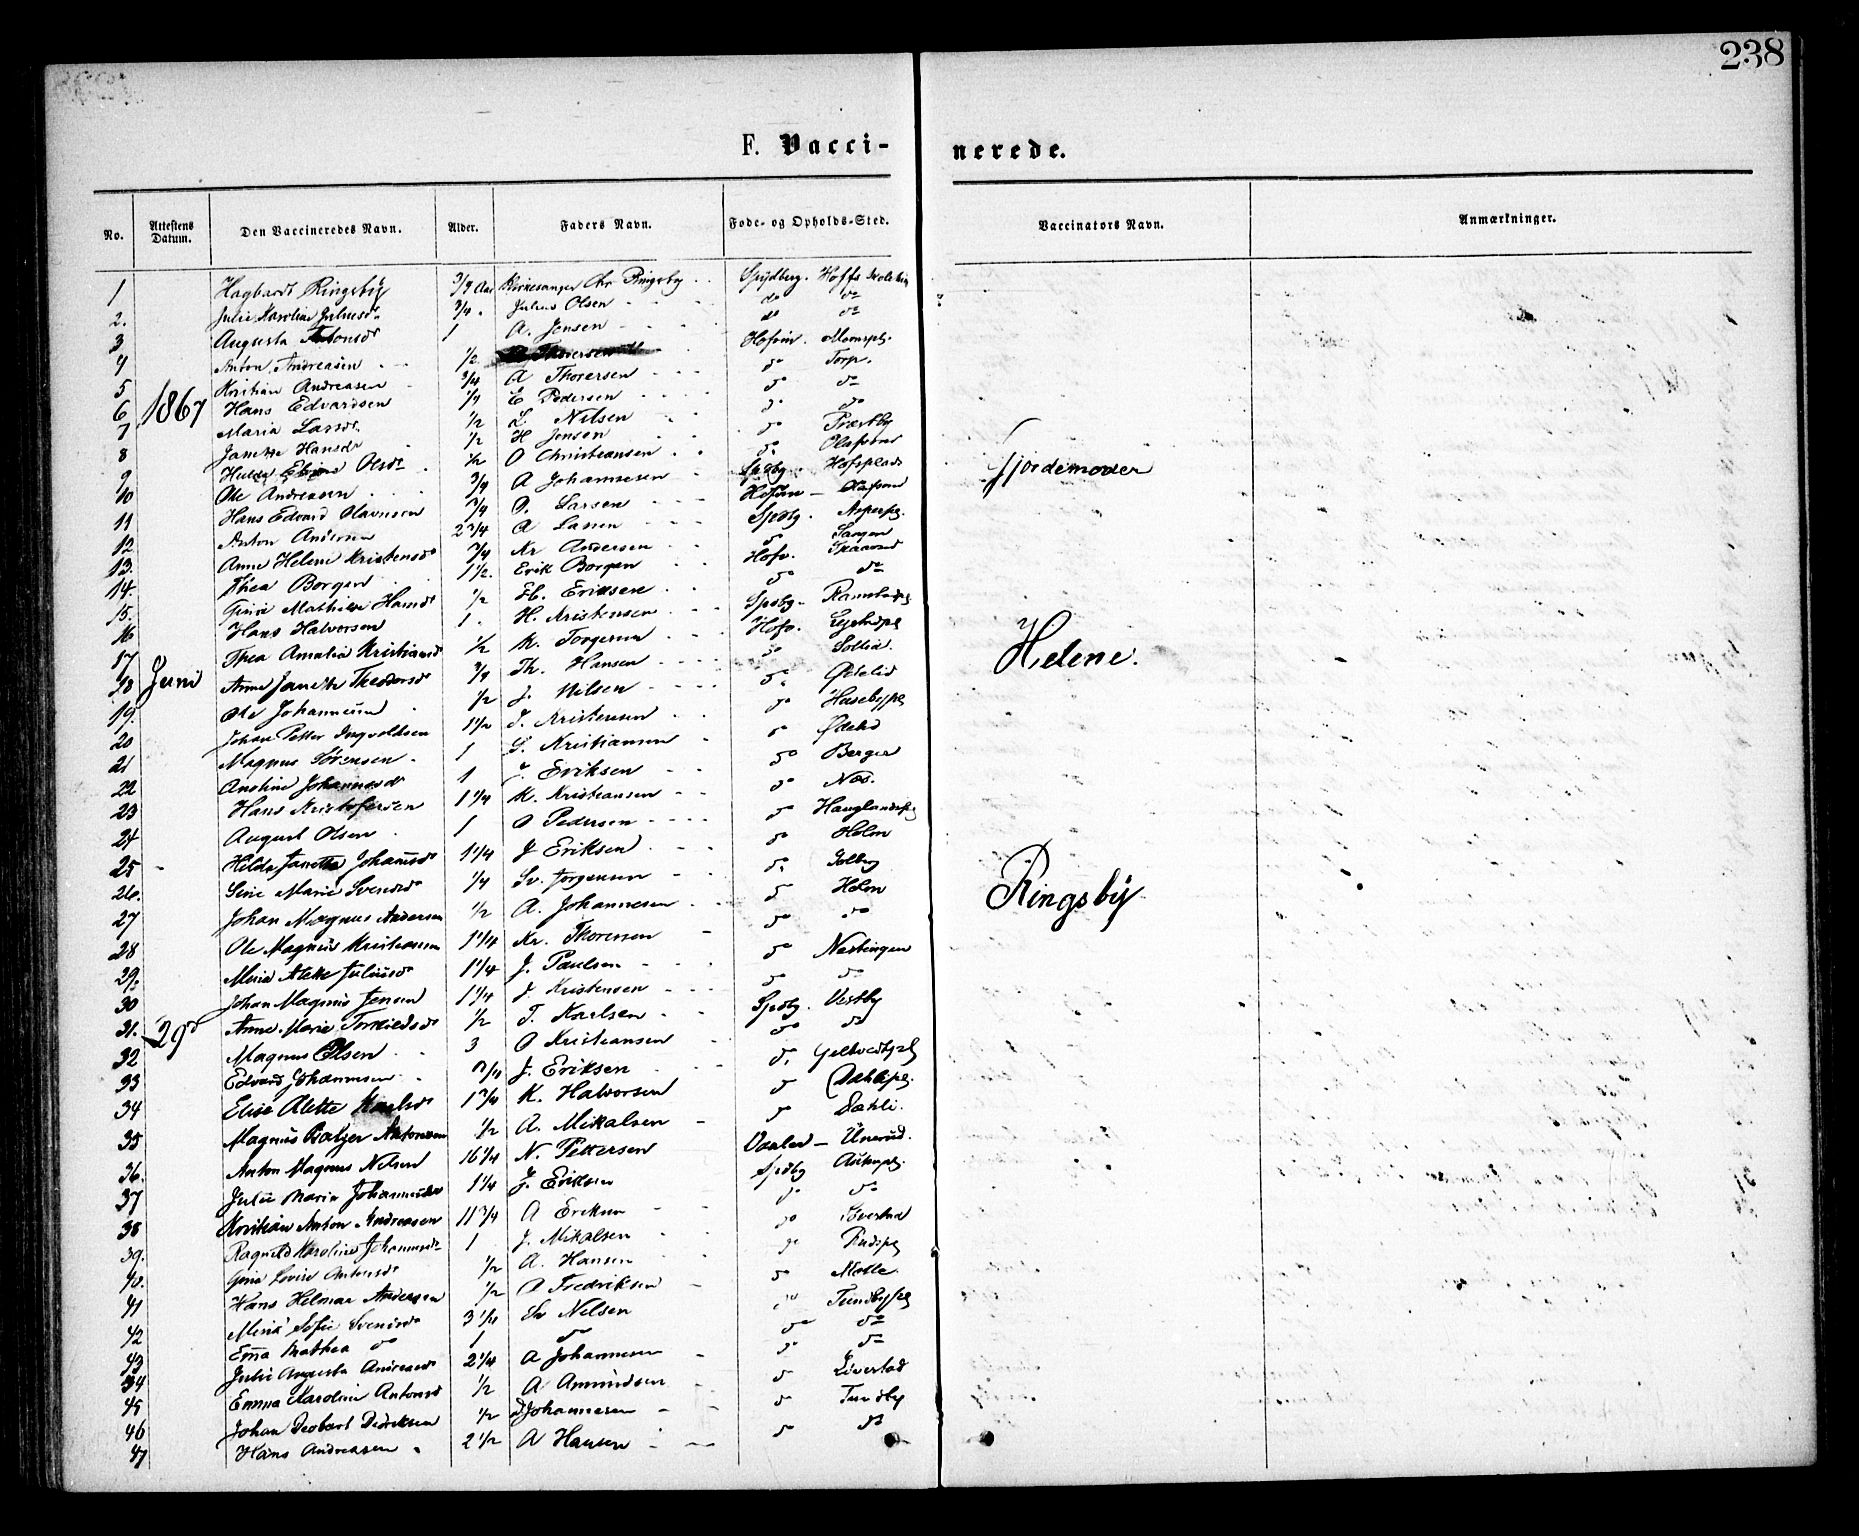 238
F. Vaccinerede.
No. Attestens Datum. Den Vaccineredes Navn. Alder. Faders Navn. Føde- og Opholds-Sted. Vaccinators Navn. Anmærkninger.
1 Hagbardt Ringsby 3/4 Aar Kirkesanger Chr Ringsby Spydberg. Hoffs
2. Julie Karoline Juliusdr 3/4 Julius Olsen do do
3 Augusta Antonsdr 1 A. Jensen Hofvin.
4 Anton Andreasen 1/2 do Torp.
5 Kristian Andreasen 3/4 A Thoresen do do
6 1867 Hans Edvardsen E Pedersen do do
7 Maria Larsdr 1/2 L. Nilsen do Præstby
8 Janette Hansdr 1/2 H Jensen do
9 Olsdr 1/2 O Christiansen Spdbg. Hofsplads
Fjordemoder
10 Ole Andreasen 3/4 A Johannesen Hofvin
11 Hans Edvard Olavusen 3/4 O. Larsen Spdbg.
12 Anton Andersen 2 3/4 A Larsen do
13. Anne Helene Kristensdr 3/4 Kr Andersen Hofv.
14. Thea Borgen 1 1/2. Erik Borgen do do
15. Mathilde Hansdr 1/2 H. Eriksen Spdbg.
16 Hans Halvorsen 1. H. Kristensen Hofv.
17 Thea Amalie Kristiansdr 1/2 K. Torgersen do Sollid.
Helene.
18 Juni Anne Janette Theodorsdr 3/4 Th. Hansen do Ødelid
19. Ole Johannesen 1/2 J. Nilsen do Husebypl
20 Johan Petter Ingvoldsen 1 1/2 I. Kristensen do Ødelid
21 Magnus Sørensen 1 S. Kristiansen do Berger
22 Anoline Johannesdr 1 J. Eriksen do Næs.
23 Hans Kristofersen 1 1/4 K. Kristiansen do Hauglandspl
24 August Olsen 1 O Pedersen do Holm
25 Hilda Janetta Johansdr 1 1/4 J Eriksen do Solberg
26. Sine Marie Svensdr 1/4 Sv. Jorgensen do Holm
Ringsby
27 Johan Magnus Andersen 1/2 A. Johannesen do do
28 Ole Magnus Kristiansen 1 1/4 Kr. Thoresen do
29. Maria Alette Juliusdr 1 1/4 J. Paulsen do do
30 Johan Magnus Jensen 1 1/4 J. Kristensen Spdbg. Vestby
31. 29de Anne Marie 1/2 T. Karlsen do do
32 Magnus Olsen 3 O Kristiansen do
33 Edvard Johannesen J. Eriksen do Dæhlipl.
34 Elise Alette Karlsdr 1 3/4 K. Halvorsen do Dæhli.
35 Magnus Balzer Antonsen 1/2 A. Mikalsen Vaaler
36. Anton Magnus Nilsen 16 1/4 N. Pettersen Spdbg
37 Julie Maria Johannesdr 1 1/4 J. Eriksen do do
38 Kristian Anton Andreasen 11 3/4 A Eriksen do
39. Ragnild Karoline Johannesdr 1 J. Mikalsen do Rudspl
40. Gina Lovise Antonsdr 1/2 A. Hansen do Molle.
41 Hans Helmar Andersen 1/2 A Fredriksen do Tundbypl
42 Sofie Svensdr 3 Sv Nilsen do do
43 Emma Mathea do 1 do do do
44 Julie Augusta Andreasdr 2 1/4 A Johannesen do
45 Emma Karoline Antonsd 1/2 A Amundsen do Tundby
46 Johan Deobart Didriksen 1/2 D Johannesen do do
47 Hans Andreasen 2 1/2 A Hansen